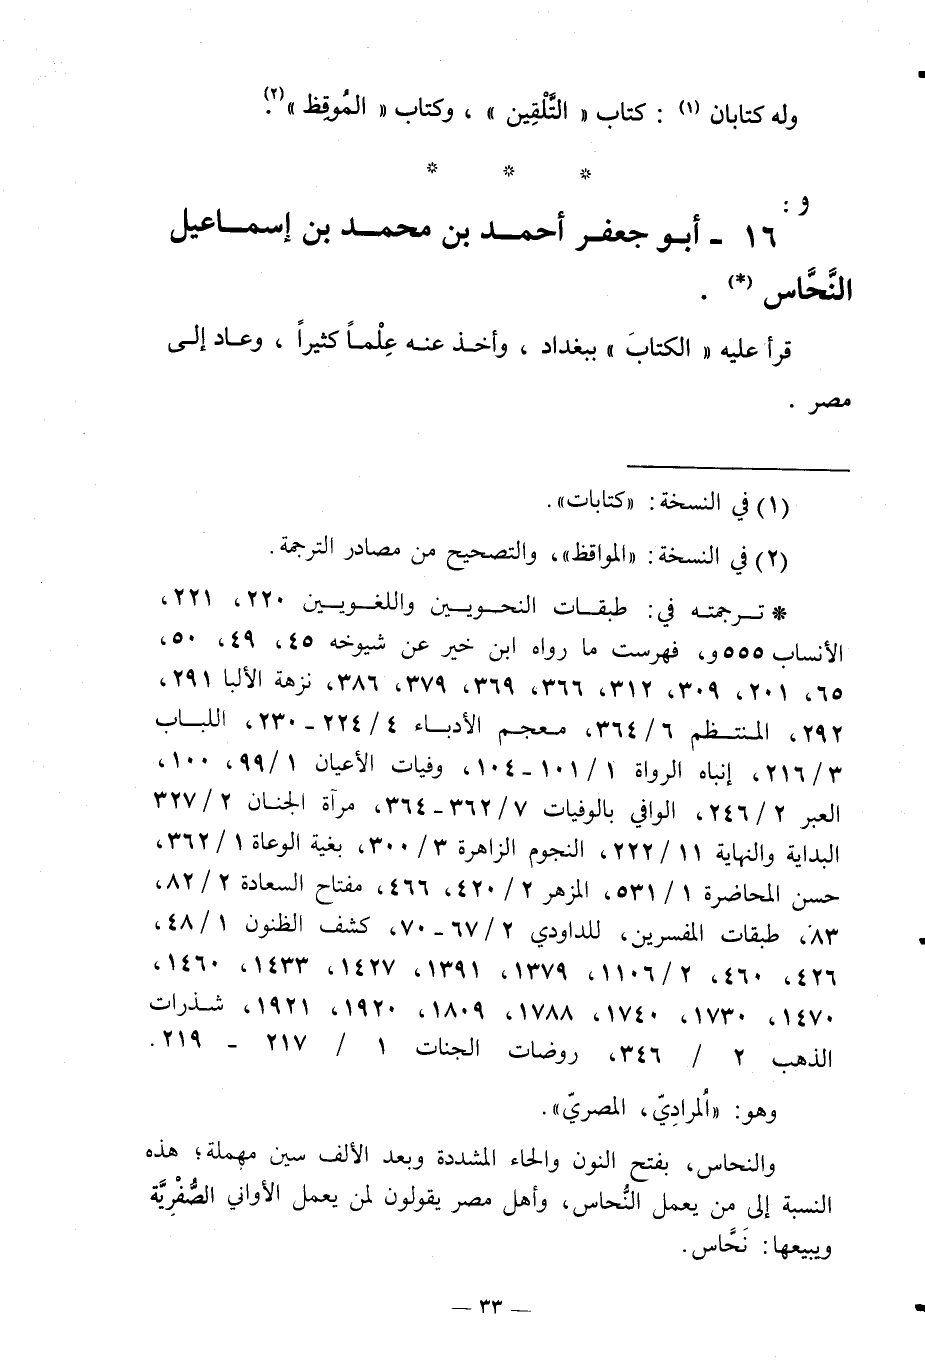 وله كتابان (١) : كتاب « التَّلْقِين » ، وكتاب « المُوقِظ »(٢).
* * *
و :
١٦ ـ أبـو جعفـر أحمـد بن محمـد بن إسمـاعيل
النَّحَّاس (*) .
قرأ عليه « الكتابَ » ببغداد ، وأخـذ عنـه عِلْمـاً كثيراً ، وعـاد إلـى
مصر .
(١) في النسخة : «كتابات» .
(٢) في النسخة : «المواقظ»، والتصحيح من مصادر الترجمة .
* تـرجمتـه في : طبقـات النحـويـين واللغـويـين ٢٢٠، ٢٢١،
الأنساب ٥٥٥و، فهرست ما رواه ابن خير عن شيوخه ٤٥، ٤٩، ٥٠،
٦٥، ٢٠١، ٣٠٩، ٣١٢، ٣٦٦، ٣٦٩، ٣٧٩، ٣٨٦، نزهة الألبا ٢٩١،
٢٩٢، المنتـظم ٦ / ٣٦٤، معجـم الأدبـاء ٤ / ٢٢٤ ـ ٢٣٠، اللبـاب
٣ / ٢١٦، إنباه الرواة ١ / ١٠١ ـ ١٠٤، وفيات الأعيان ١ / ٩٩، ١٠٠،
العبر ٢ / ٢٤٦، الوافي بالوفيات ٧ / ٣٦٢ ـ ٣٦٤، مرآة الجنـان ٢ / ٣٢٧
البداية والنهاية ١١ / ٢٢٢، النجوم الزاهرة ٣ / ٣٠٠، بغية الوعاة ١ / ٣٦٢،
حسن المحاضرة ١ / ٥٣١، المزهر ٢ / ٤٢٠، ٤٦٦، مفتاح السعادة ٢ / ٨٢،
٨٣، طبقات المفسرين، للداودي ٢ / ٦٧ ـ ٧٠، كشف الظنون ١ / ٤٨،
٤٢٦، ٤٦٠، ٢ / ١١٠٦، ١٣٧٩، ١٣٩١، ١٤٢٧، ١٤٣٣، ١٤٦٠،
١٤٧٠، ١٧٣٠، ١٧٤٠، ١٧٨٨، ١٨٠٩، ١٩٢٠، ١٩٢١، شـذرات
الذهب ٢ / ٣٤٦، روضات الجنات ١ / ٢١٧ ـ ٢١٩ .
وهو : «المُرادِيّ، المصريّ» .
والنحاس، بفتح النون والحاء المشددة وبعد الألف سين مهملة؛ هذه
النسبة إلى من يعمل النُّحاس، وأهل مصر يقولون لمن يعمل الأواني الصُّفْرِيَّة
ويبيعها : نَحَّاس .
— ٣٣ —